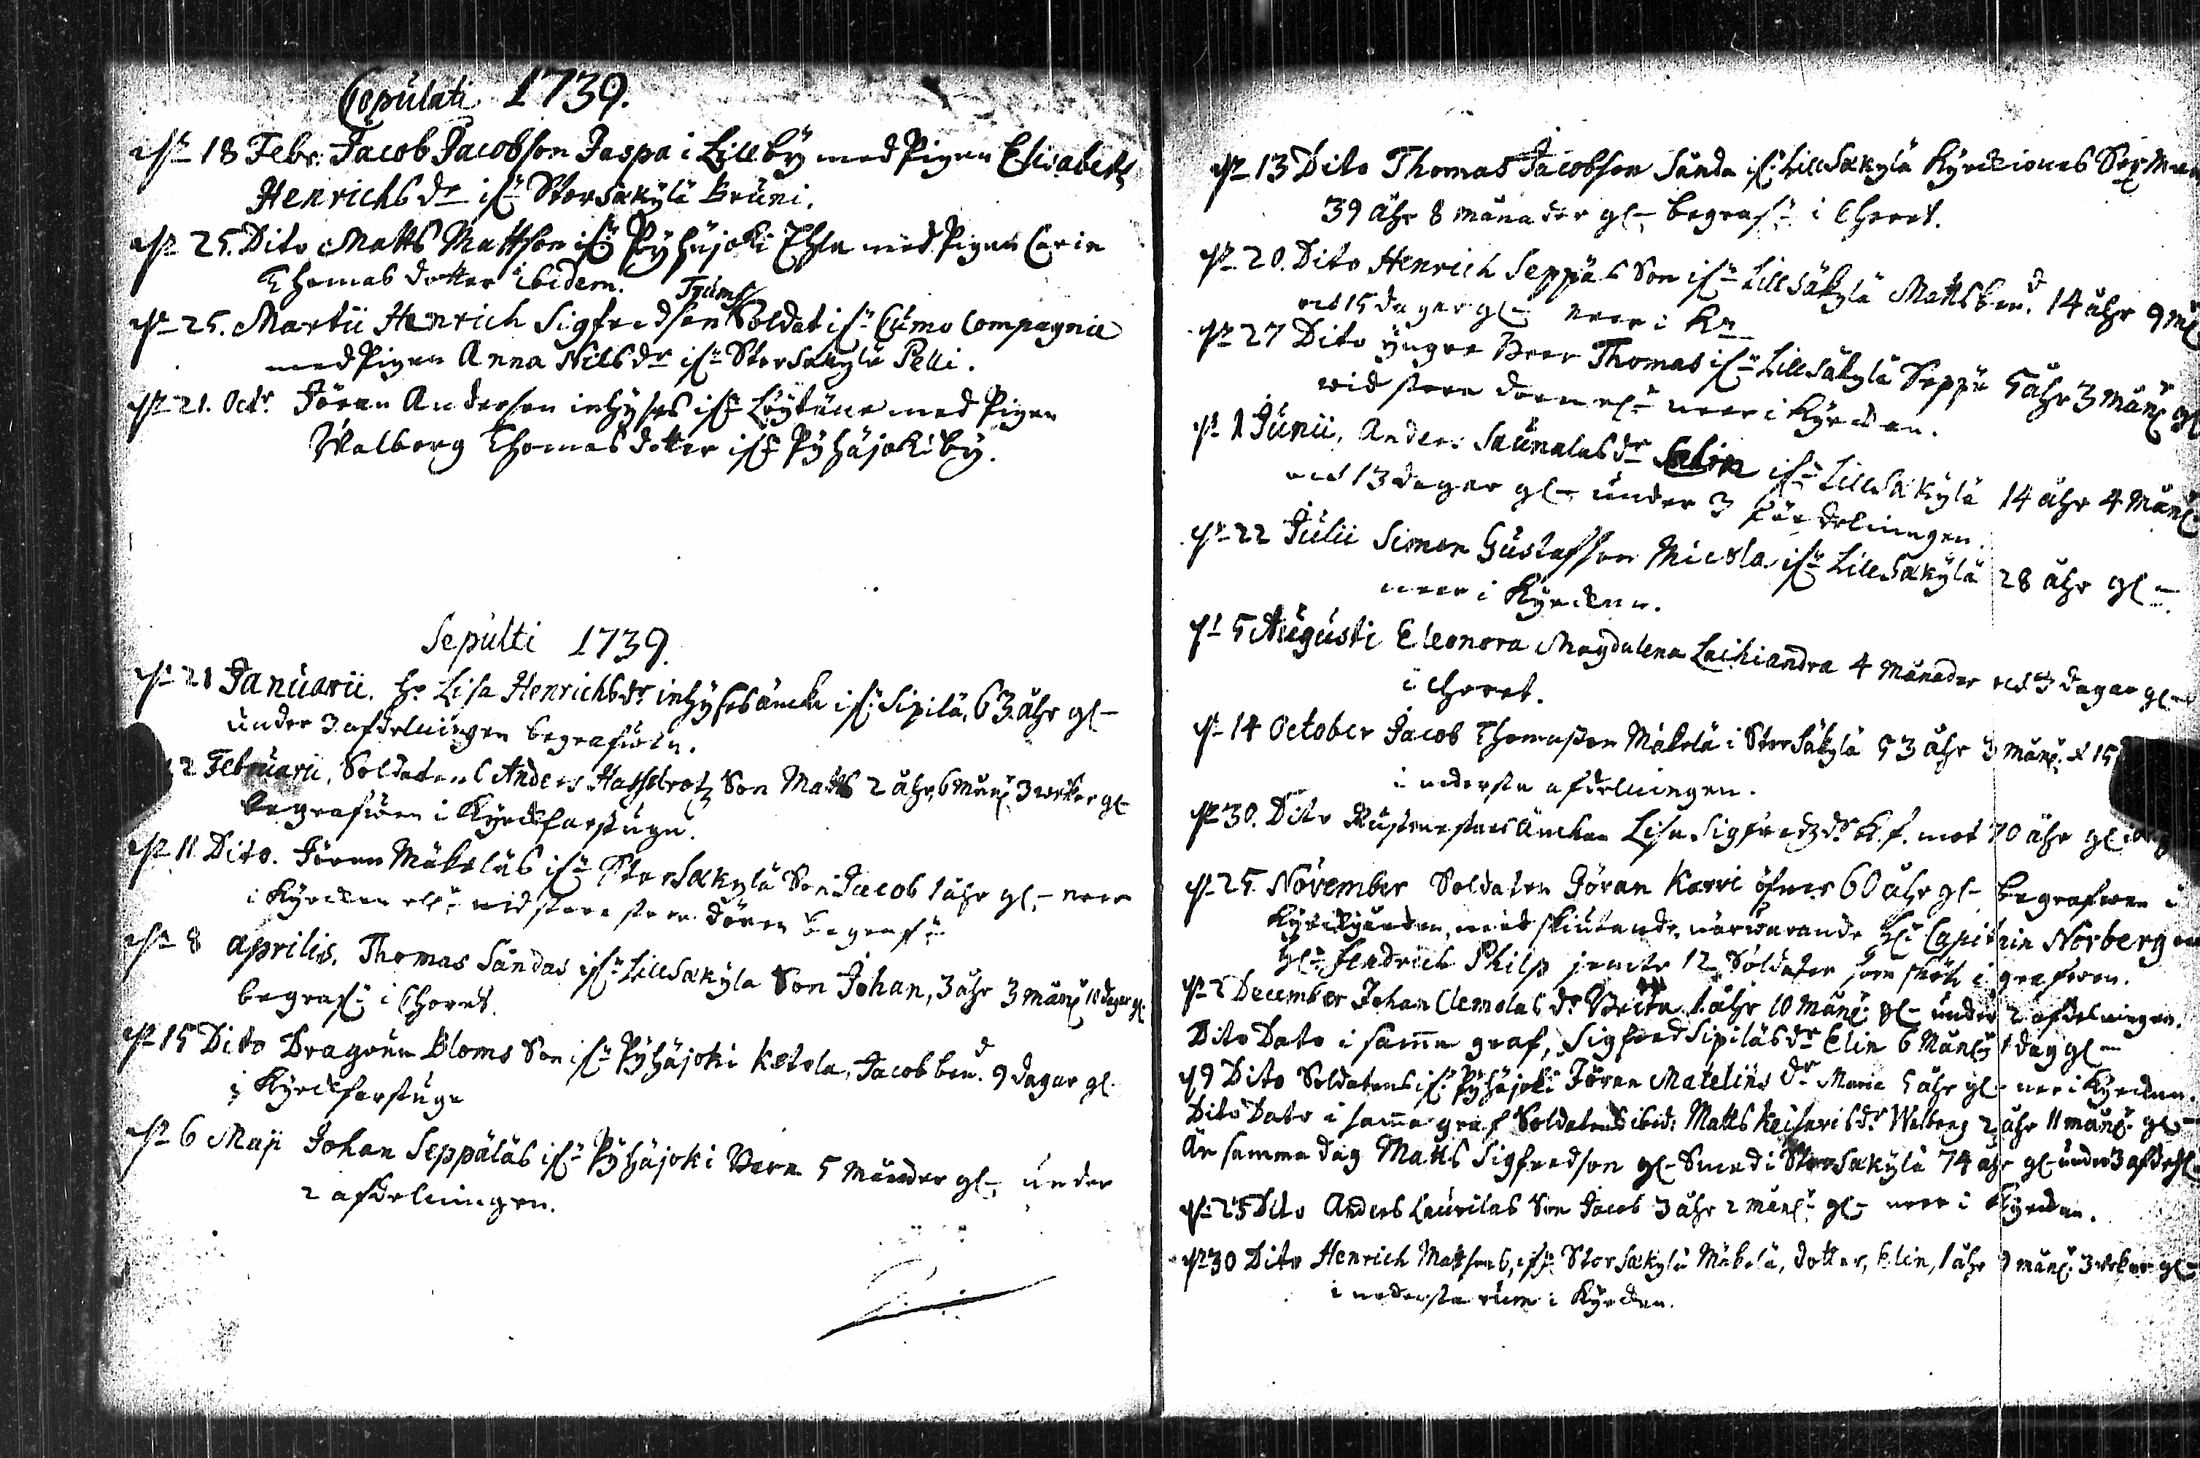 Copulati 1739.
dn 18 Febr: Jacob Jacobson Jaspa i Lillby med Pigan Elisabeth
Henrichs dr ifrn Storsäkylä Bruni.
dn 25. Dito Matts Mattson ifrn Pyhäjoki Ihla med Pigan Carin
Thomas dotter ibidem.
dn 25. Martii Henrich Sigfredson Soldat ifrn Cumo Compagnie
med Pigan Anna Nils dr ifrn Storsäkylä Pelli.
dn 21. Octr Jöran Anderson inhyses ifrn Löytäne med Pigan
Walborg Thomas dotter ifrn Pyhäjoki by.
Sepulti 1739.
dn 21 Januarii. Lisa Henrichsdr inhyses änckia ifrn Sipilä, 63 åhr gl
under 3 afdelningen begrafwen.
2 Februarii, Soldatens Anders Hasselrotz Son Matts 2 åhr, 6 mån 3 wekor gl
begrafwen i Kyrckfarstugu.
dn 11 Dito. Jöran Mäkeläs ifrn Storsäkylä Son Jacob 1 åhr gl. neer
i Kyrckan wid stora dören begrafn
dn 8 Aprilis. Thomas Sandas ifrn Lillsäkyla Son Johan, 3 åhr 3 mån 10 dagar gl.
begrafn i Choret.
dn 15 Dito Dragoun Bloms Son ifrn Pyhäjoki Ketola, Jacob ben.d 9 dagar gl.
i Kyrckfarstugu
dn 6 Maji Johan Seppäläs ifrn Pyhäjoki Barn 5 månader gl, under
2 afdelningen.
dn 13 Dito Thomas Jacobson Sanda ifrn Lillsäkylä Kyrckiones Sexman
39 åhr 8 månader gl begrafn i Choret.
dn 20. Dito Henrich Seppäs Son ifrn Lillsäkylä Matts ben.d 14 åhr 9 mån
och 15 dagar gl neer i Kn
dn 27 Dito yngre Thomas ifrn Lillsäkylä Seppä 5 åhr 3 mån gl
wid stora dören neer i Kyrckan.
dn 1 Junii, Anders Saunalas dr ifrn Lillsäkylä 14 åhr 4 mån
och 13 dagar gl under 3 afdelningen.
dn 22 Julii Simon Gustafson Micola ifrn Lillsäkylä 28 åhr gl
neer i Kyrckan.
dn 5 Augusti Eleonora Magdalena Laihiandra 4 månader och 3 dagar gl
i choret.
dn 14 October Jacob Thomason Mäkelä i Storsäkylä 53 åhr 3 mån. & 15
i nedersta afdelningen.
dn 30. Dito Rustmestars Änckan Lisa Sigfredzdr mot 70 åhr gl
dn 25 November Soldaten Jöran Karri öfwer 60 åhr gl begrafwen i
Kyrckgården, med skiutande, närwarande Hr Capitain Norberg
Hr Fendrich Philp jemte 12 Soldater som sköto i grafwen.
dn 2 December Johan Clemolas dr 1 åhr 10 mån. gl under 2 afdelningen.
Dito Dato i samma graf, Sigfred Sipiläs dr Elin 6 mån 1 dag gl
d 9 Dito Soldatens ifrn Pyhäjoki Jöran Matelins dr Maria 5 åhr gl neer i Kyrckan.
Dito Dato i samma graf Soldatens ibid: Matts Keisaris dr Walborg 2 åhr 11 mån. gl
samma dag Matts Sigfredson gl Smed i Storsäkylä 74 åhr gl under 3 afdehl.
dn 25 Dito Anders Laurilas Son Jacob 3 åhr 2 mån gl neer i Kyrckan.
dn 30 Dito Henrich Mattsons, ifrn Storsäkylä Mäkelä, dotter, Elin, 1 åhr 9 mån. 3 wekor gl
i nedersta rum i Kyrckan.